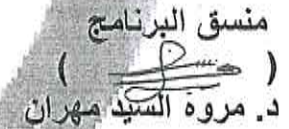 منسق البرنامج
( )
د. مروه السيد مهران